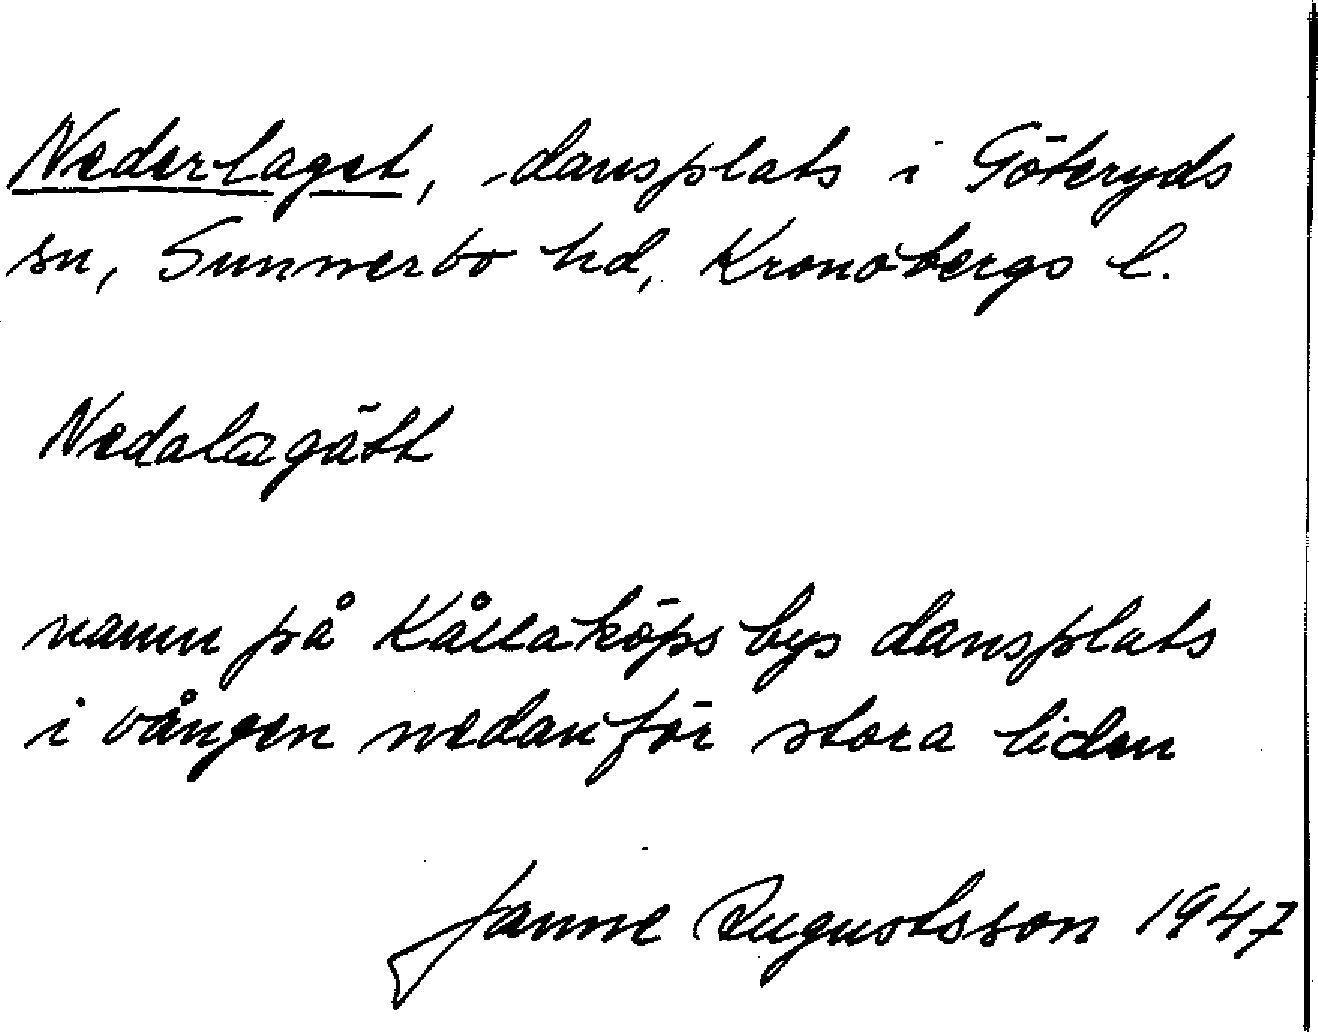 Nederlaget, dansplats i Göteryds
sn, Sunnerbo hd, Kronobergs l.
Nedalagätt
namn på Kållaköps bys dansplats
i vången nedanför stora liden
Janne Augustsson 1947